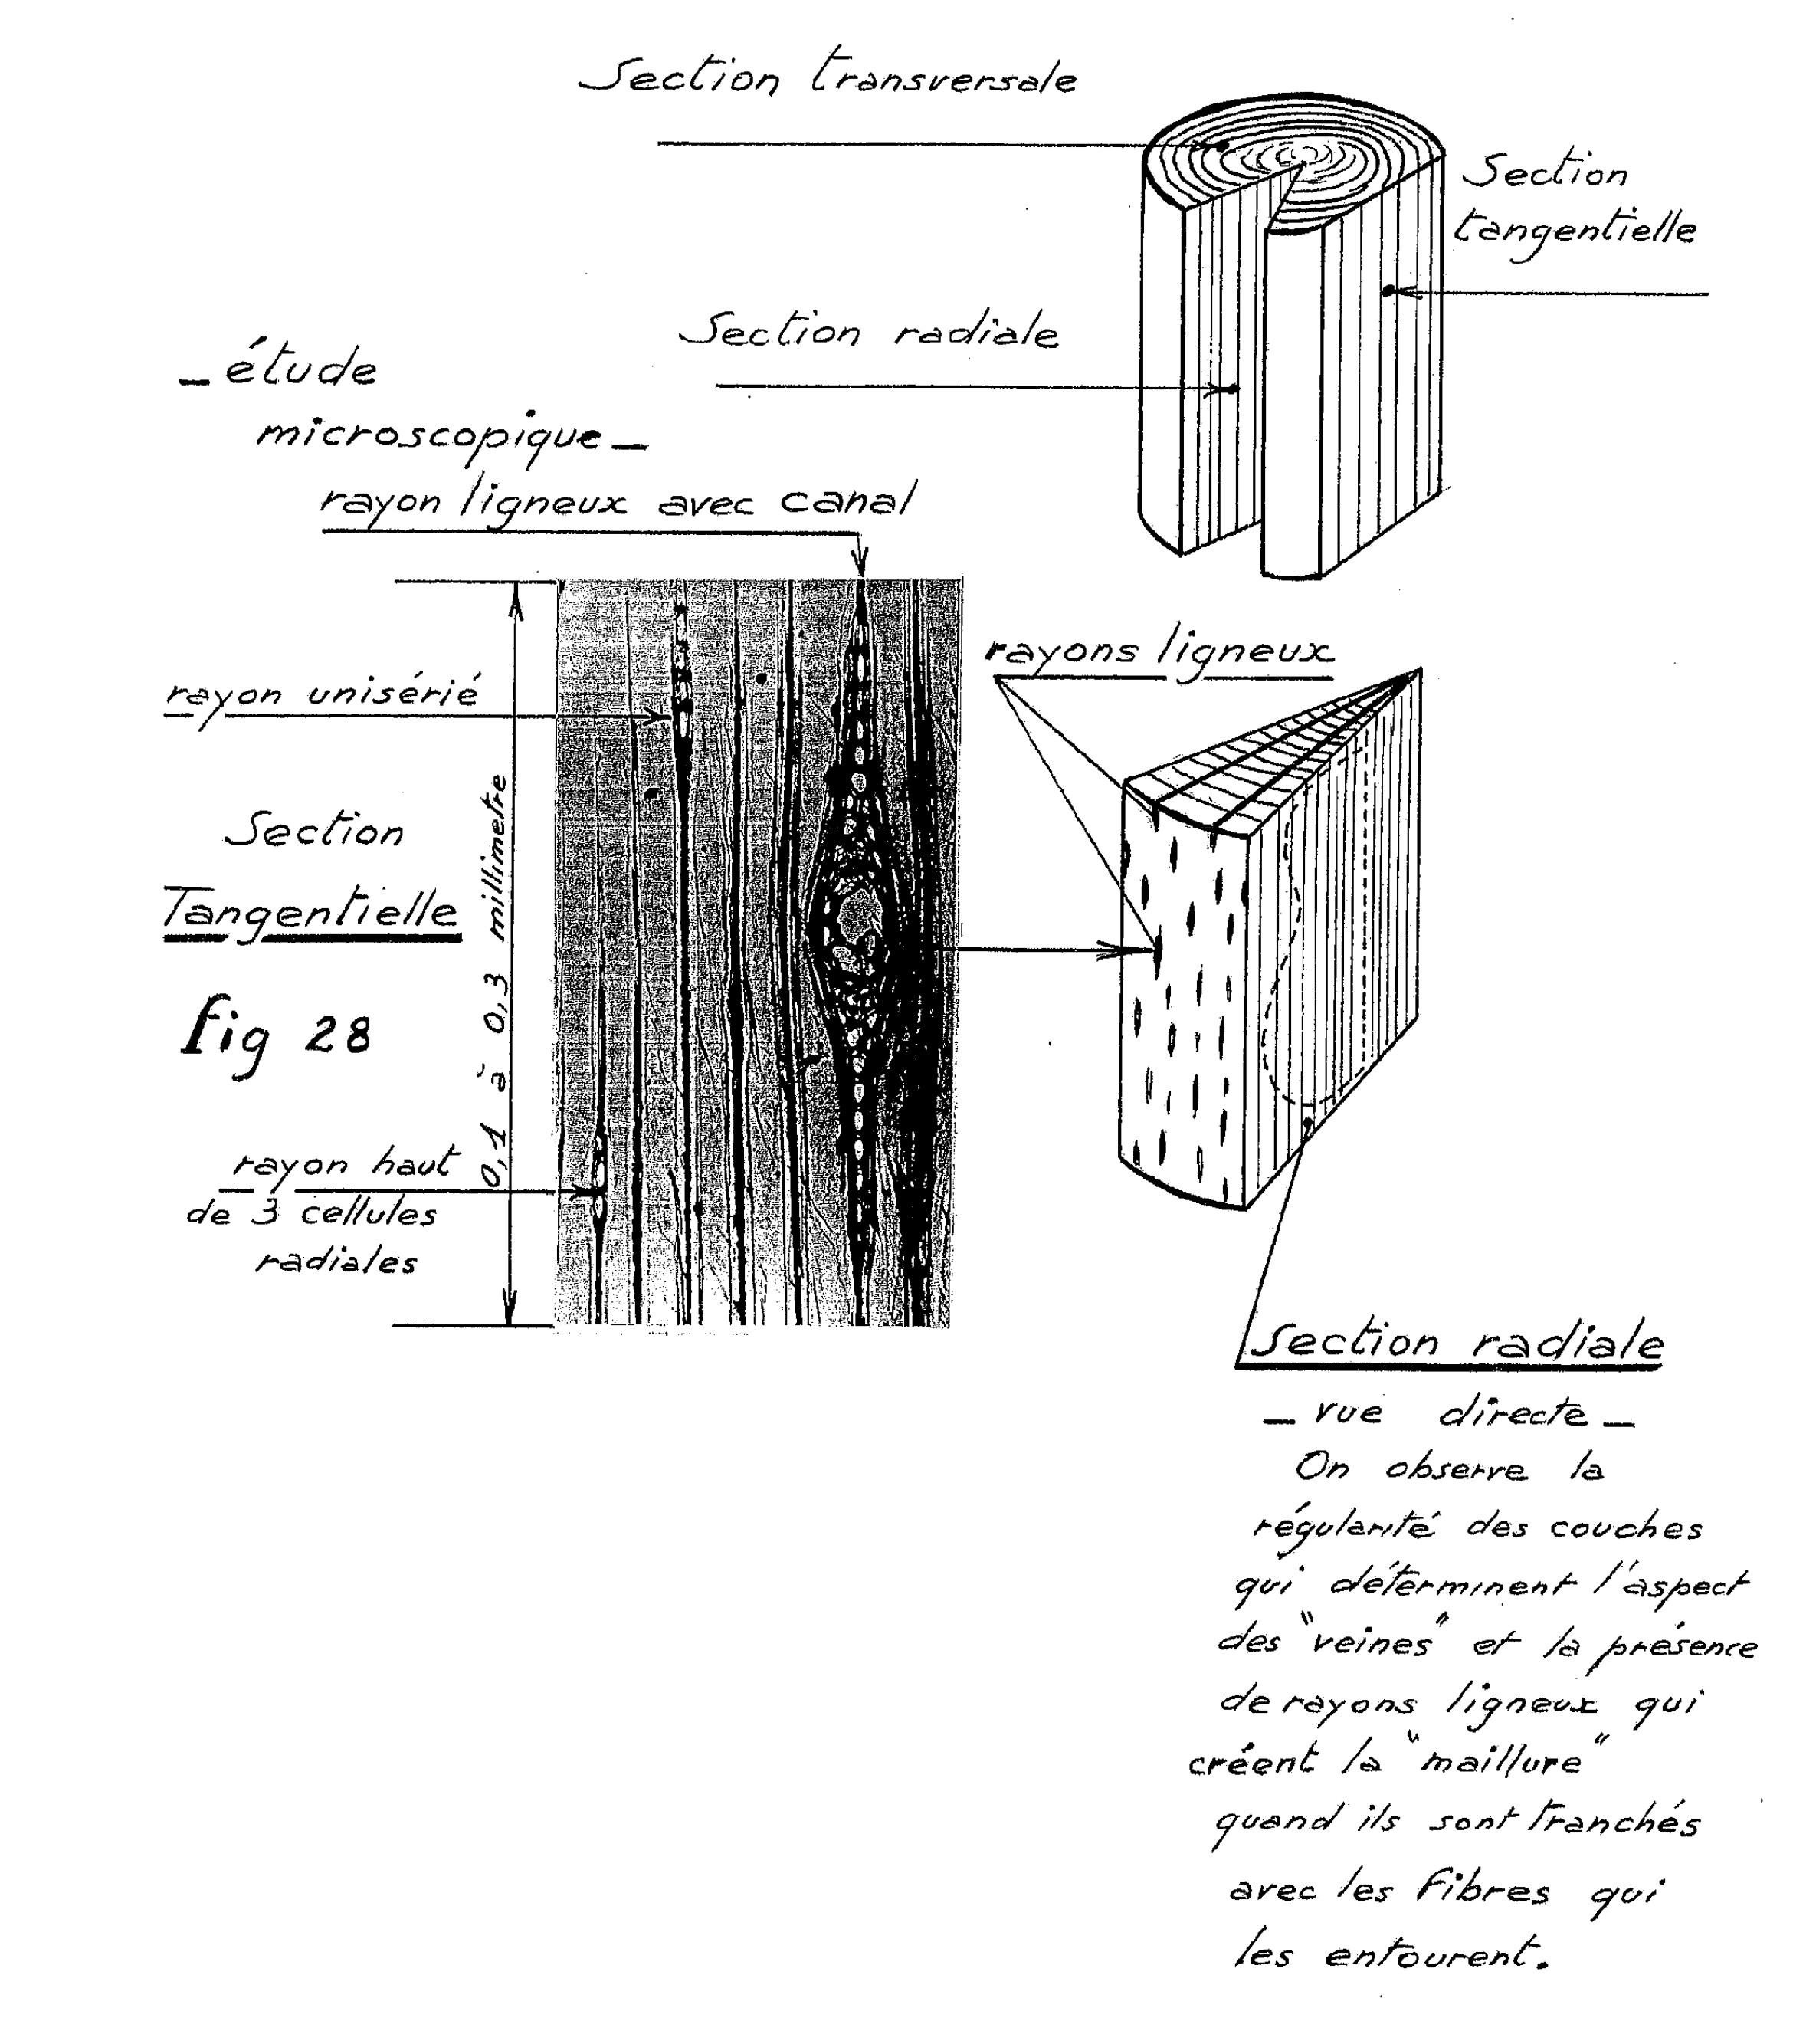 Section transversale
Section
tangentielle
Section radiale
_ étude
microscopique _
rayon ligneux avec canal
rayons ligneux
rayon unisérié
Section
Tangentielle
fig 28
0,1 à 0,3 millimetre
rayon haut
de 3 cellules
radiales
Section radiale
_ vue directe _
On observe la
régularité des couches
qui déterminent l'aspect
des "veines" et la présence
de rayons ligneux qui
créent la "maillure"
quand ils sont tranchés
avec les fibres qui
les entourent.